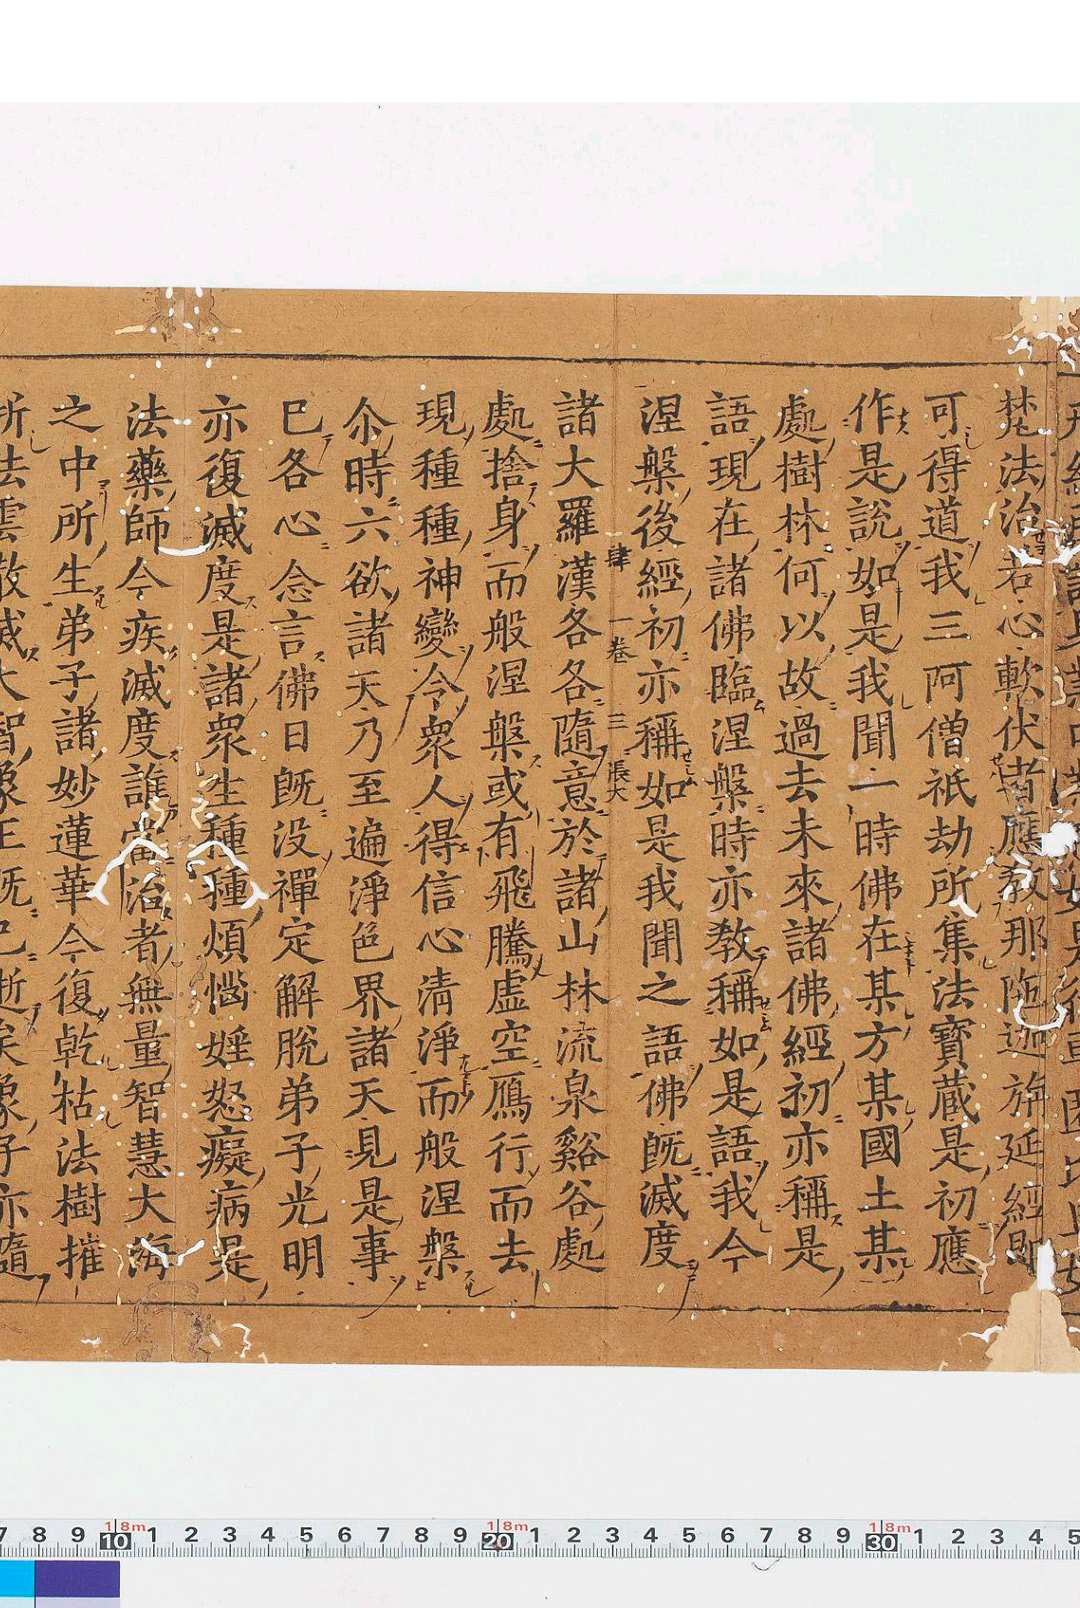 梵法治若心軟伏者應教那陁迦旃延經即
可得道我三阿僧祇劫所集法寶藏是初應
作是說如是我聞一時佛在某方某國土某
處樹林何以故過去未來諸佛經初亦稱是
語現在諸佛臨涅槃時亦教稱如是語我今
涅槃後經初亦稱如是我聞之語佛旣滅度
諸大羅漢各各隨意於諸山林流泉谿谷處
肆 一卷 三 張大
處捨身而般涅槃或有飛騰虛空鴈行而去
現種種神變令衆人得信心清淨而般涅槃
尒時六欲諸天乃至遍淨色界諸天見是事
已各心念言佛日旣没禪定解脫弟子光明
亦復滅度是諸衆生種種煩惱婬怒癡病是
法藥師今疾滅度誰當治者無量智慧大海
之中所生弟子諸妙蓮華今復乾枯法樹摧
折法雲散滅大智象王旣已逝矣象子亦隨
7 8 9 10 1 2 3 4 5 6 7 8 9 20 1 2 3 4 5 6 7 8 9 30 1 2 3 4 5